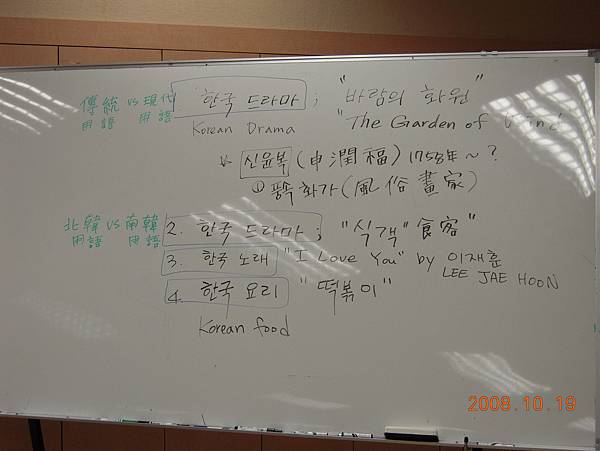 傳統 vs 現代 한국 드라마 ; "바람의 화원"
用語 用語 Korean Drama "The Garden of Wind
신윤복 (申潤福) 1758年 ~ ?
① 풍속화가 (風俗畫家)
北韓 vs 南韓 2. 한국 드라마 ; "식객" 食客"
用語 用語 3. 한국 노래 "I Love You" by 이재훈
LEE JAE HOON
4. 한국 요리 "떡볶이"
Korean food
2008.10.19